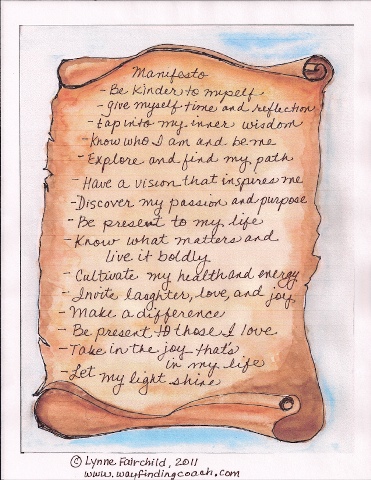 Manifesto
- Be kinder to myself
- give myself time and reflection
- tap into my inner wisdom
- Know who I am and be me
- Explore and find my path
- Have a vision that inspires me
- Discover my passion and purpose
- Be present to my life
- Know what matters and
live it boldly
- Cultivate my health and energy
- Invite laughter, love, and joy
- Make a difference
- Be present to those I love
- Take in the joy that's
in my life
- Let my light shine
© Lynne Fairchild, 2011
www.wayfindingcoach.com